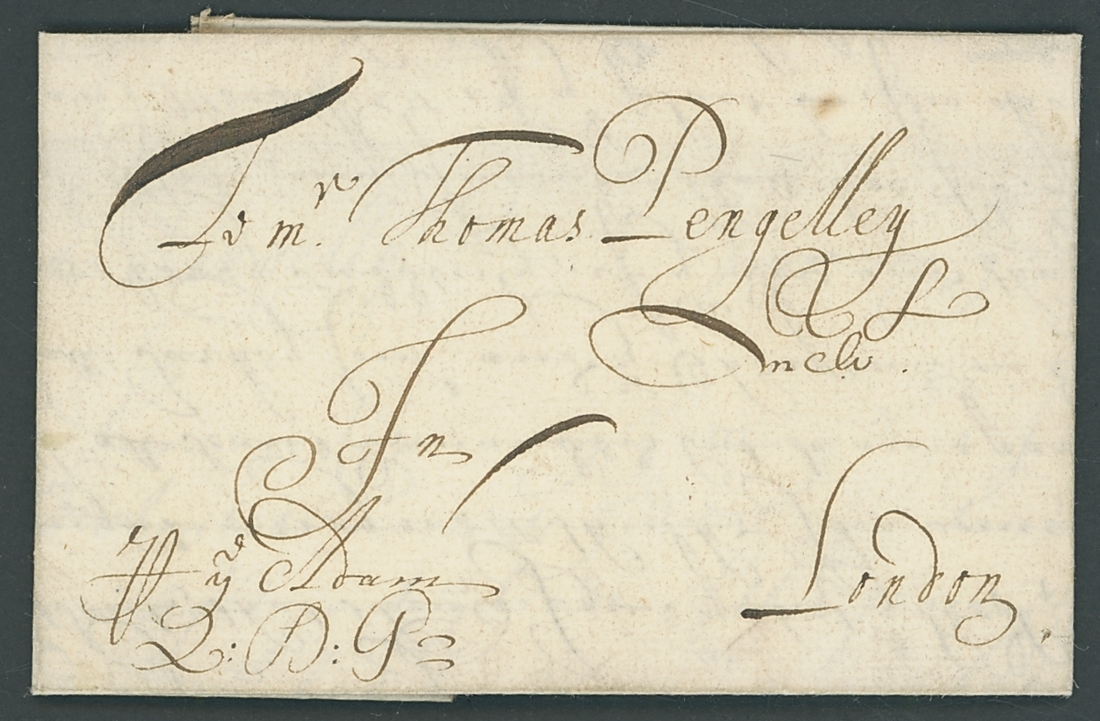 To mr. Thomas Pengelley
mcht.
In
London
ye Adam
Q: D: G=